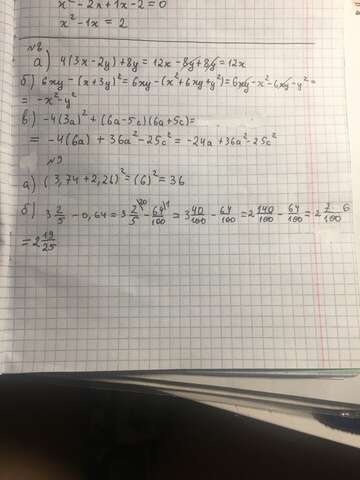 x² - 2x + 1x - 2 = 0
x² - 1x = 2
№8
а) 4(3x - 2y) + 8y = 12x - 8y + 8y = 12x
б) 6xy - (x + 3y)² = 6xy - (x² + 6xy + y²) = 6xy - x² - 6xy - y² =
= -x² - y²
в) -4(3a)² + (6a - 5c)(6a + 5c) =
= -4(6a) + 36a² - 25c² = -24a + 36a² - 25c²
№9
а) (3,74 + 2,26)² = (6)² = 36
б) 3 2/5 - 0,64 = 3 2/5 \20 - 64/100 \1 = 3 40/100 - 64/100 = 2 140/100 - 64/100 = 2 76/100
= 2 19/25